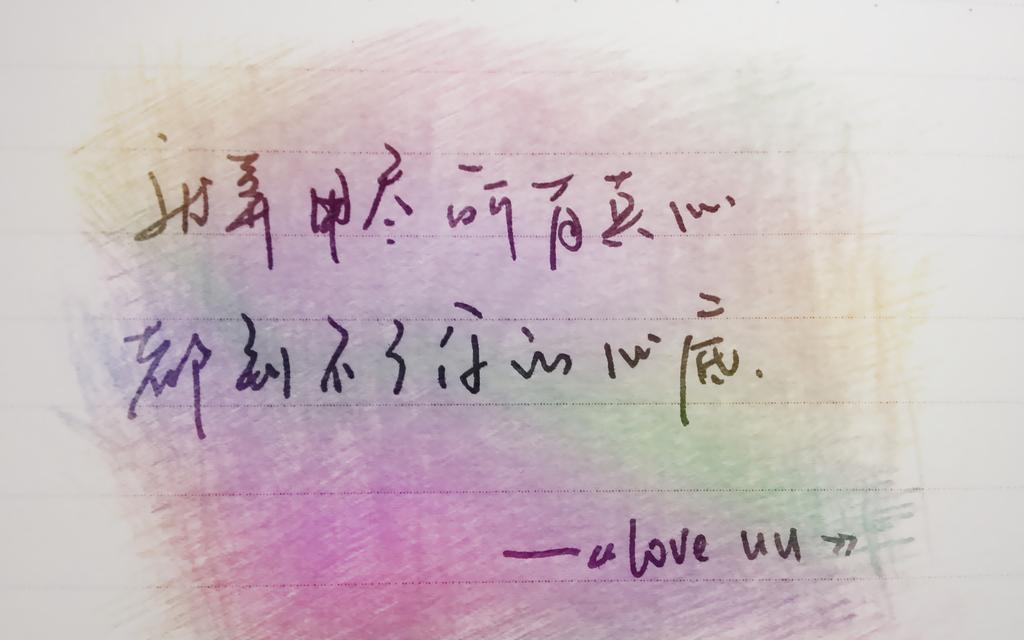 我算用尽所有真心
都到不了你的心底.
—«love uu»